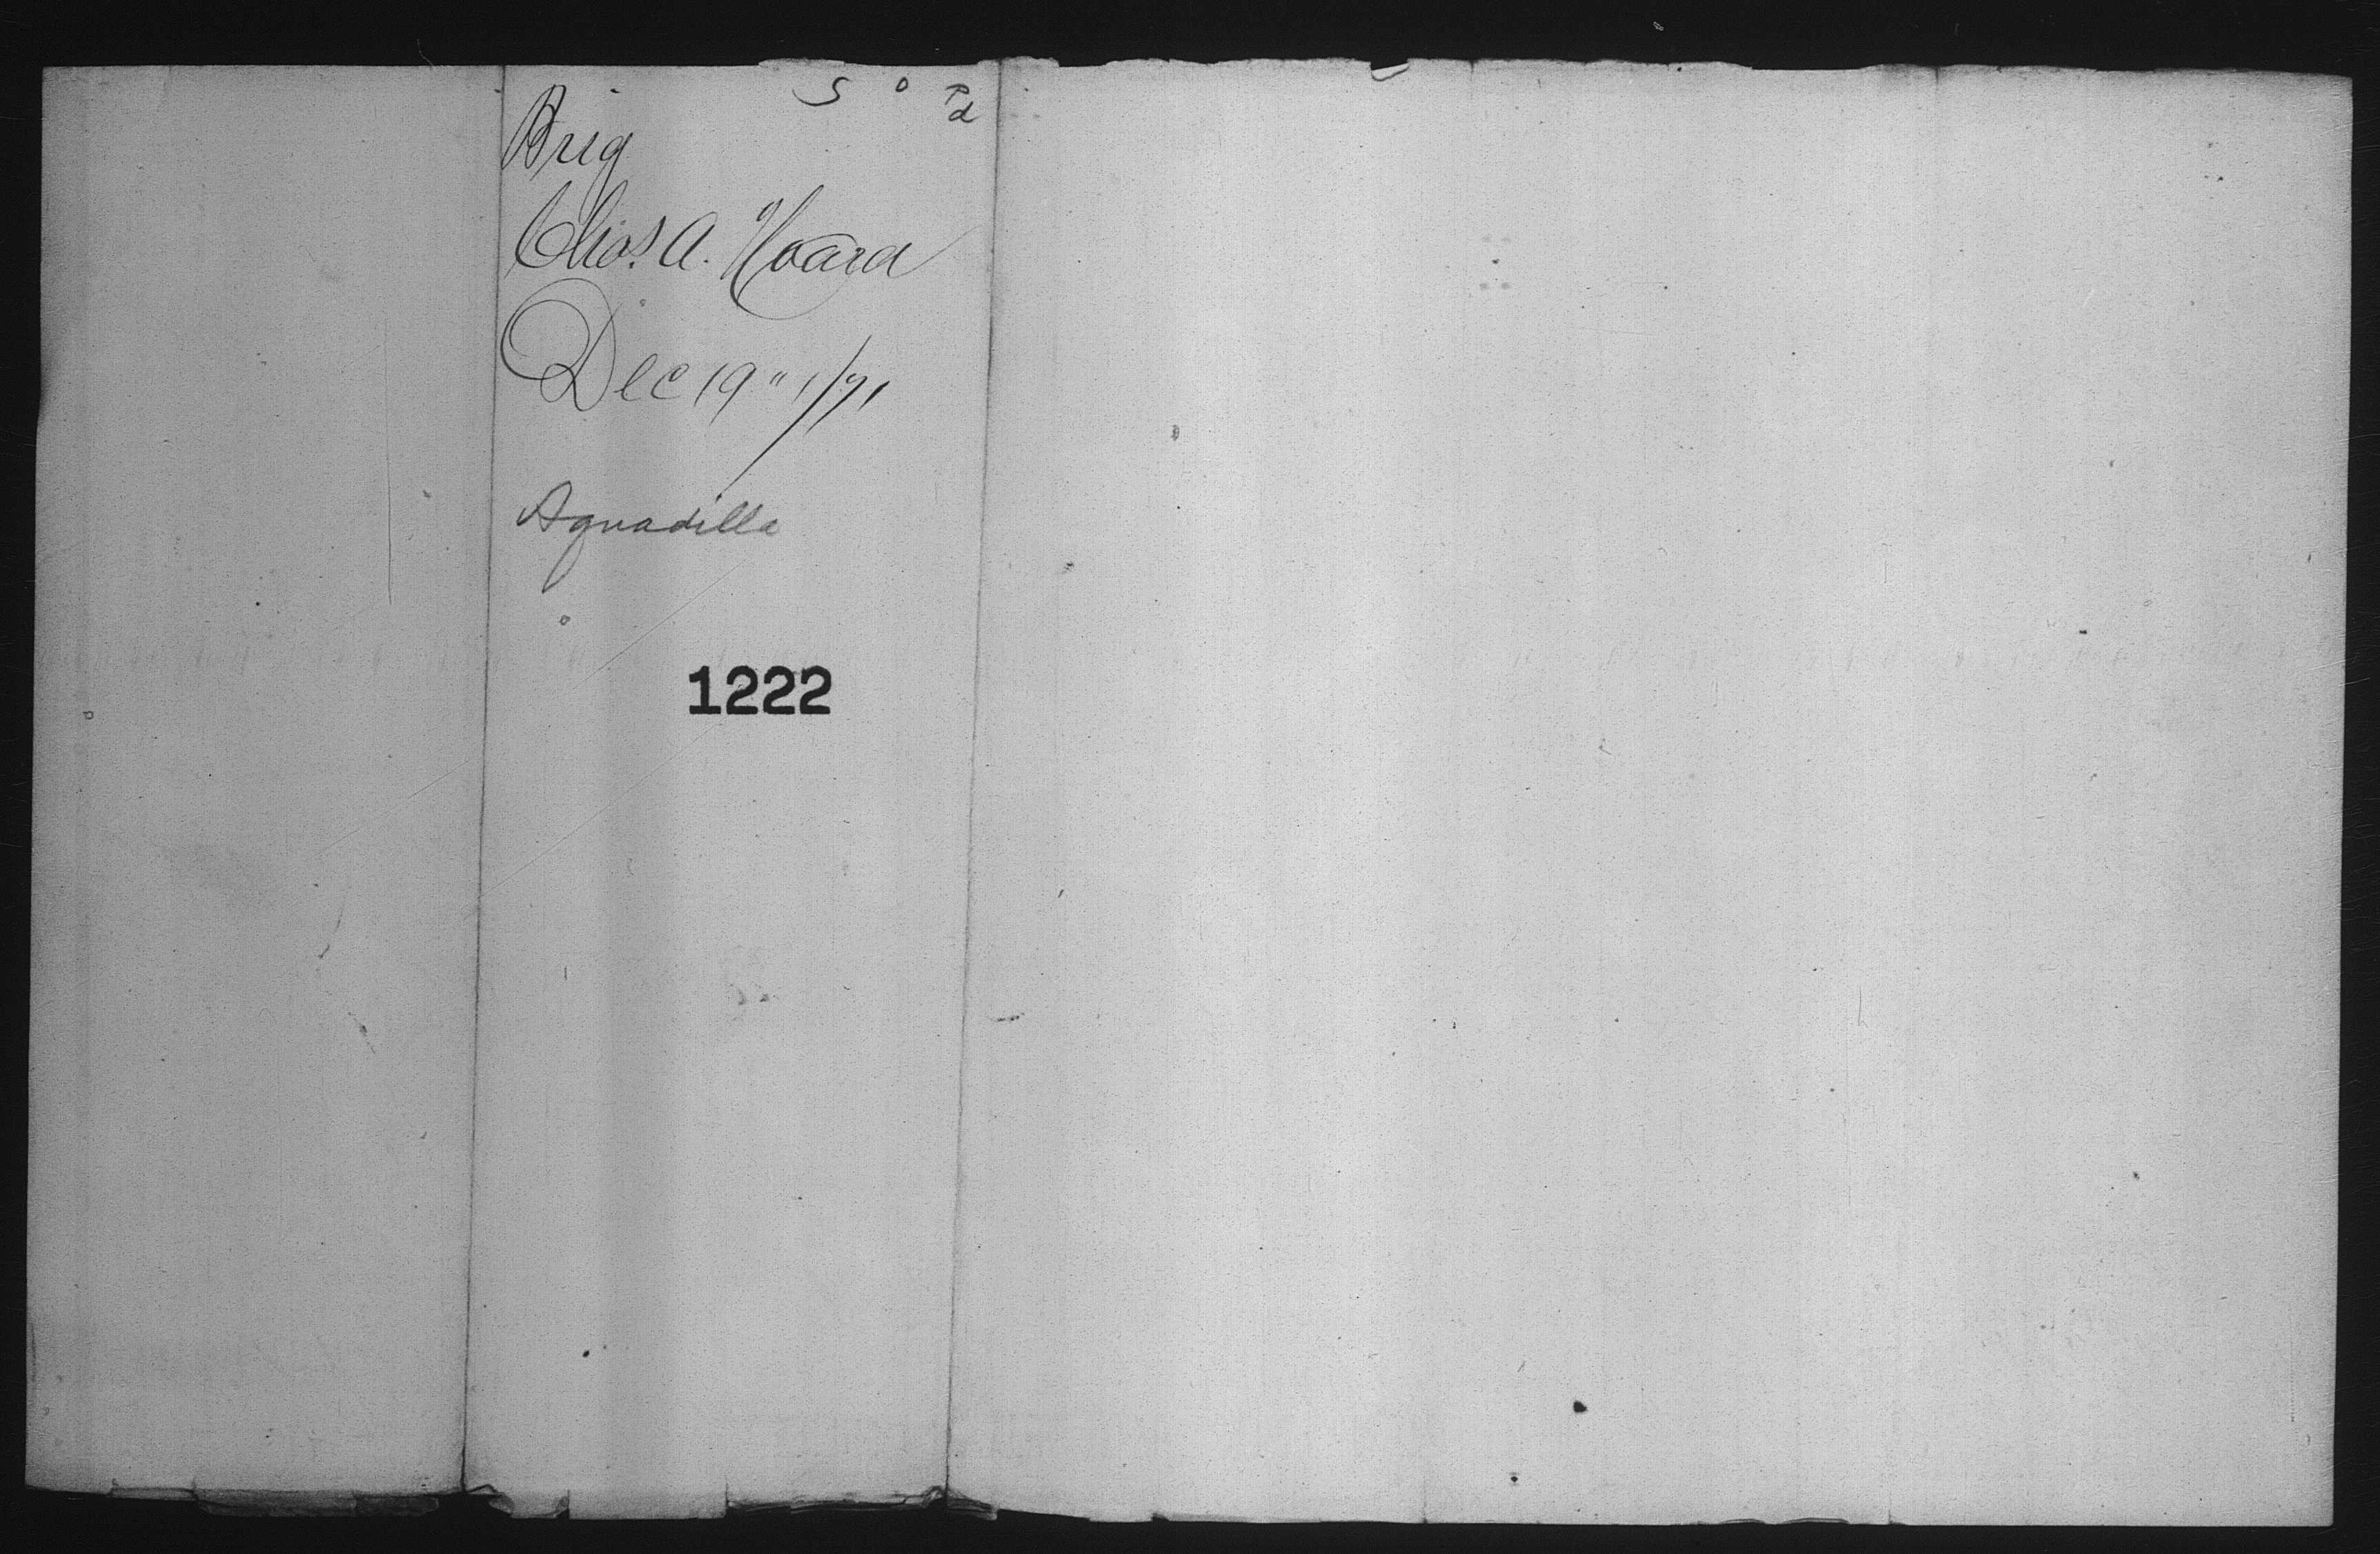 S o Pd
Brig
Chas. A. Hoard
Dec 19" 1/71
Aguadilla
1222